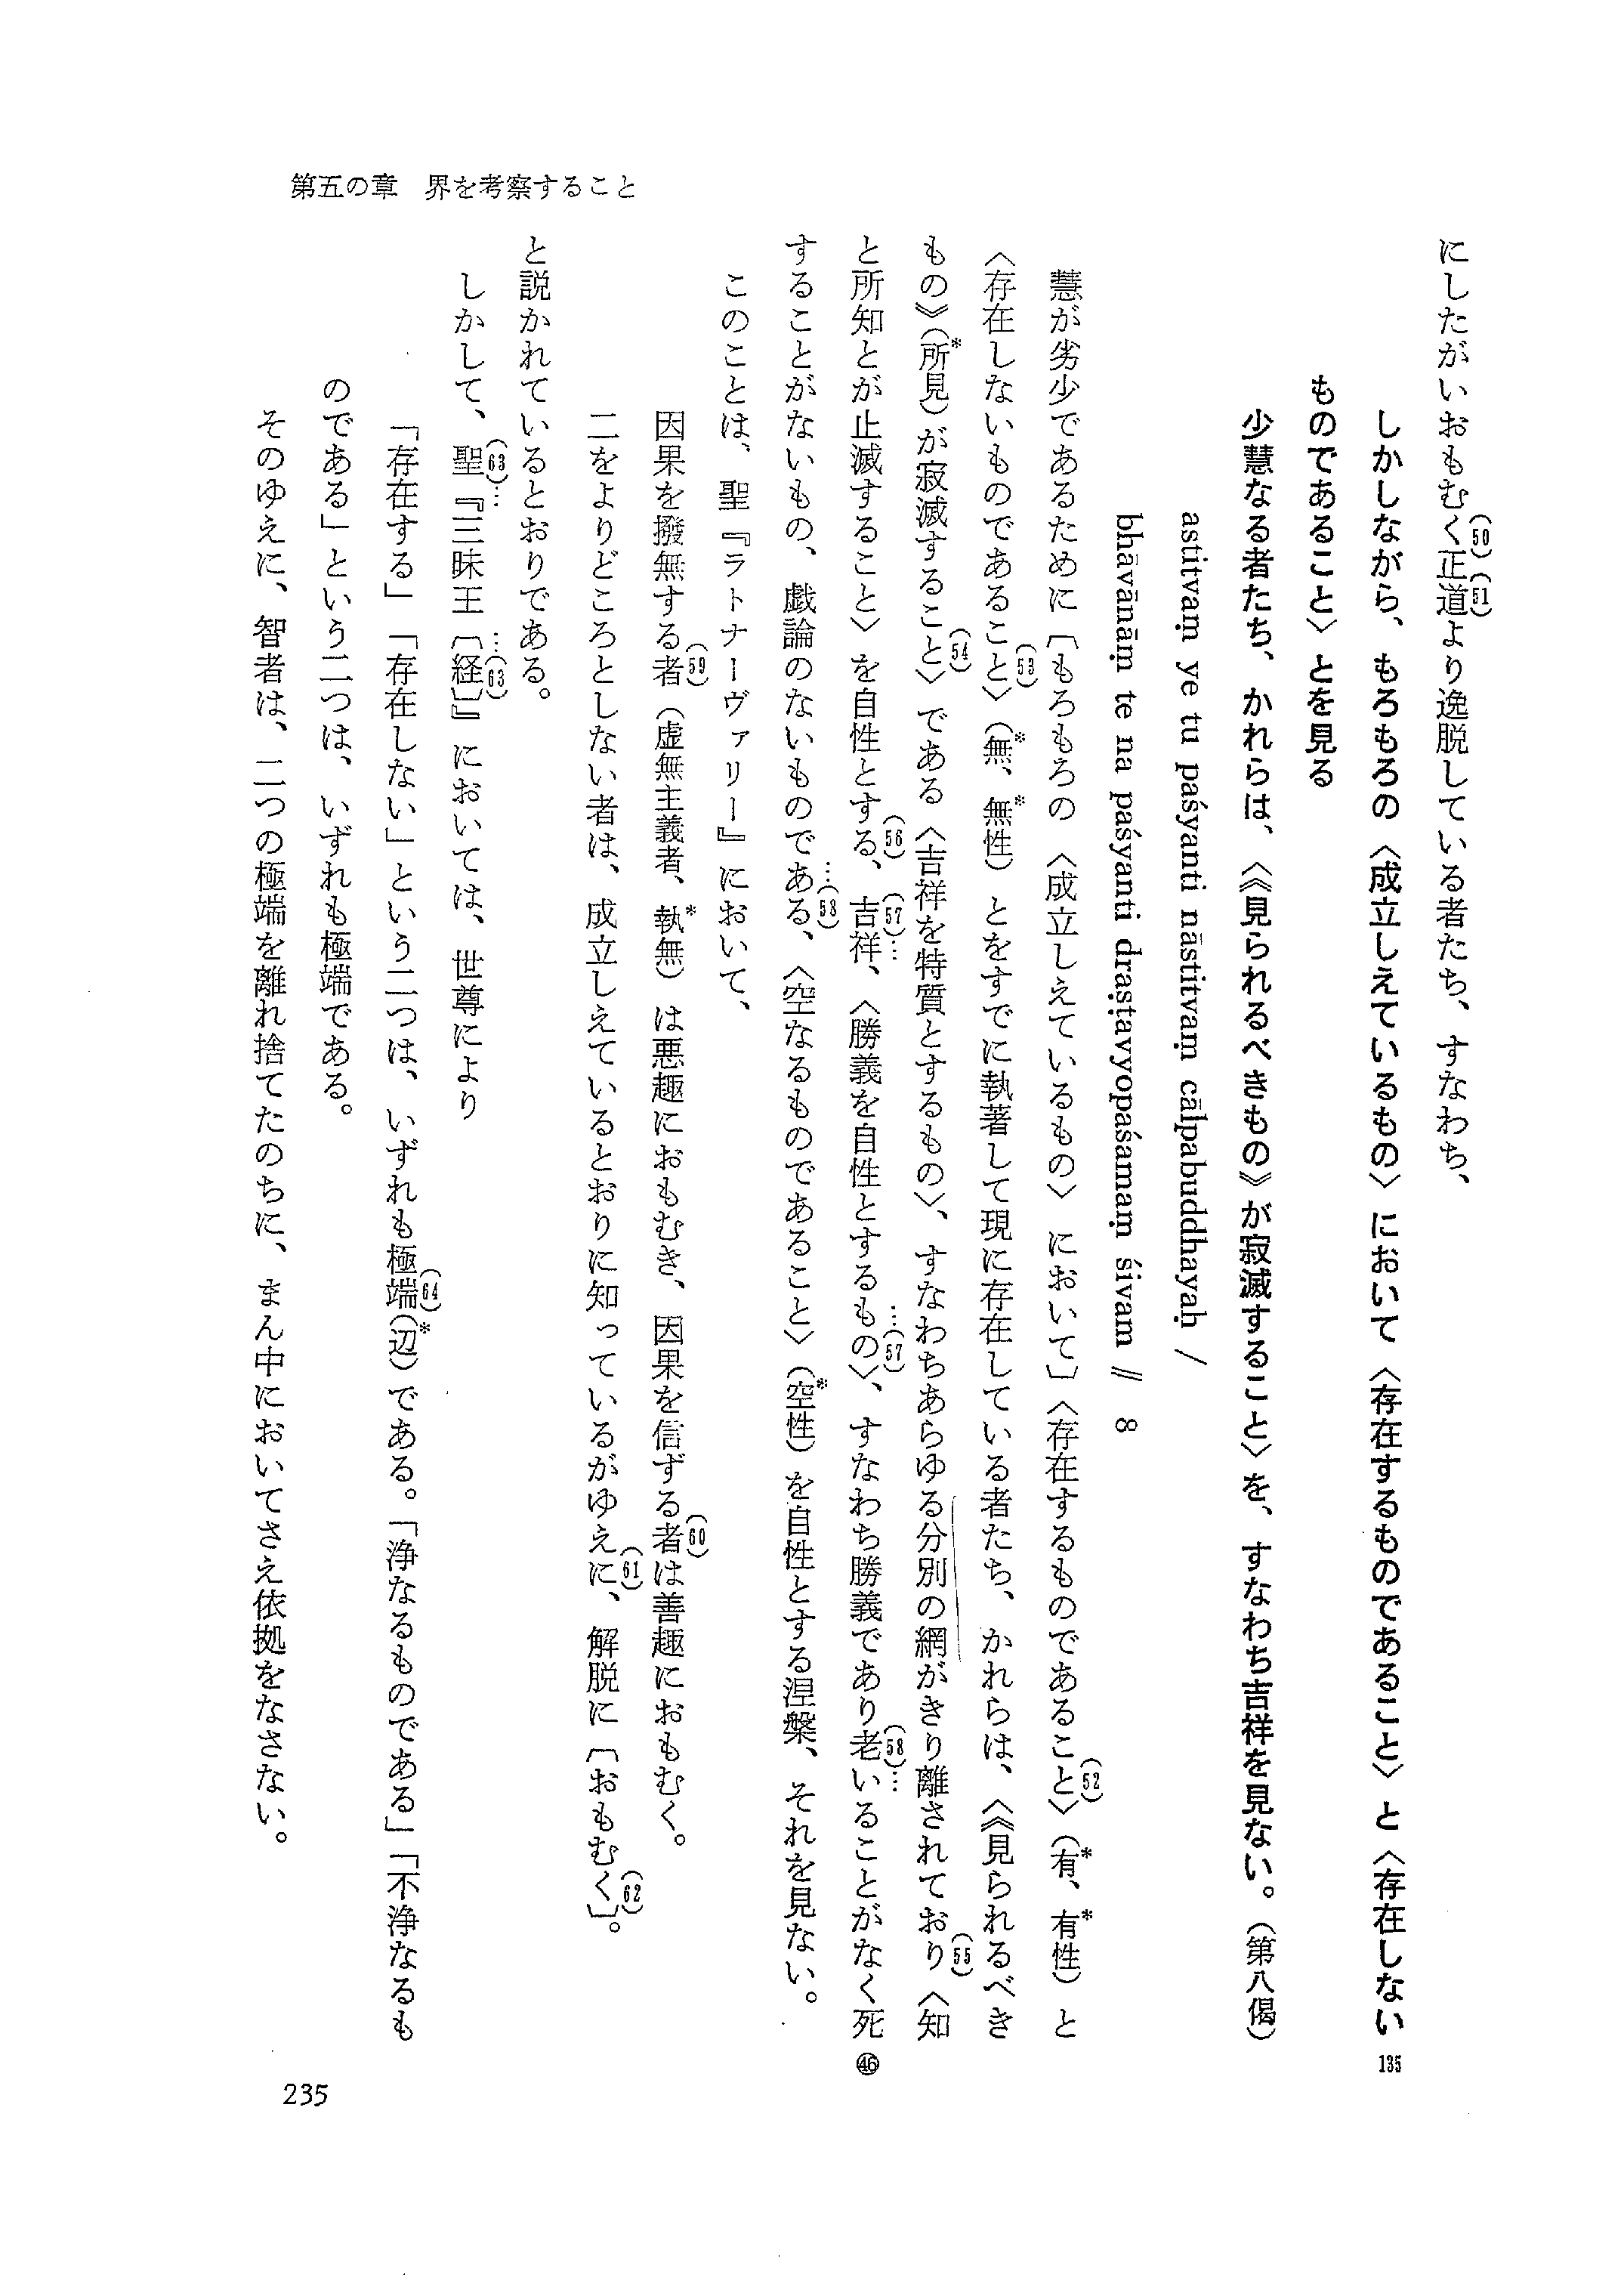 第五の章　界を考察すること
にしたがいおもむく(50)正道(51)より逸脱している者たち、すなわち、
しかしながら、もろもろの〈成立しえているもの〉において〈存在するものであること〉と〈存在しない
135
ものであること〉とを見る
少慧なる者たち、かれらは、〈《見られるべきもの》が寂滅すること〉を、すなわち吉祥を見ない。（第八偈）
astitvaṃ ye tu paśyanti nāstitvaṃ cālpabuddhayaḥ /
bhāvānāṃ te na paśyanti draṣṭavyopaśamaṃ śivam // 8
慧が劣少であるために〔もろもろの〈成立しえているもの〉において〕〈存在するものであること(52)〉（有*、有*性）と
〈存在しないものであること(53)〉（無*、無*性）とをすでに執著して現に存在している者たち、かれらは、〈《見られるべき
もの》（所*見）が寂滅すること(54)〉である〈吉祥を特質とするもの〉、すなわちあらゆる分別の網がきり離されており(55)〈知
と所知とが止滅すること〉を自性とする(56)、(57)…吉祥、〈勝義を自性とするもの…(57)〉、すなわち勝義であり(58)…老いることがなく死
㊻
することがないもの、戯論のないものである…(58)、〈空なるものであること〉（空*性）を自性とする涅槃、それを見ない。
このことは、聖『ラトナーヴァリー』において、
因果を撥無する者(59)（虚無主義者、執*無）は悪趣におもむき、因果を信ずる者(60)は善趣におもむく。
二をよりどころとしない者は、成立しえているとおりに知っているがゆえに(61)、解脱に〔おもむく(62)〕。
と説かれているとおりである。
しかして、(63)…聖『三昧王〔経〕…(63)』においては、世尊により
「存在する」「存在しない」という二つは、いずれも極端(64)（辺*）である。「浄なるものである」「不浄なるも
のである」という二つは、いずれも極端である。
そのゆえに、智者は、二つの極端を離れ捨てたのちに、まん中においてさえ依拠をなさない。
235